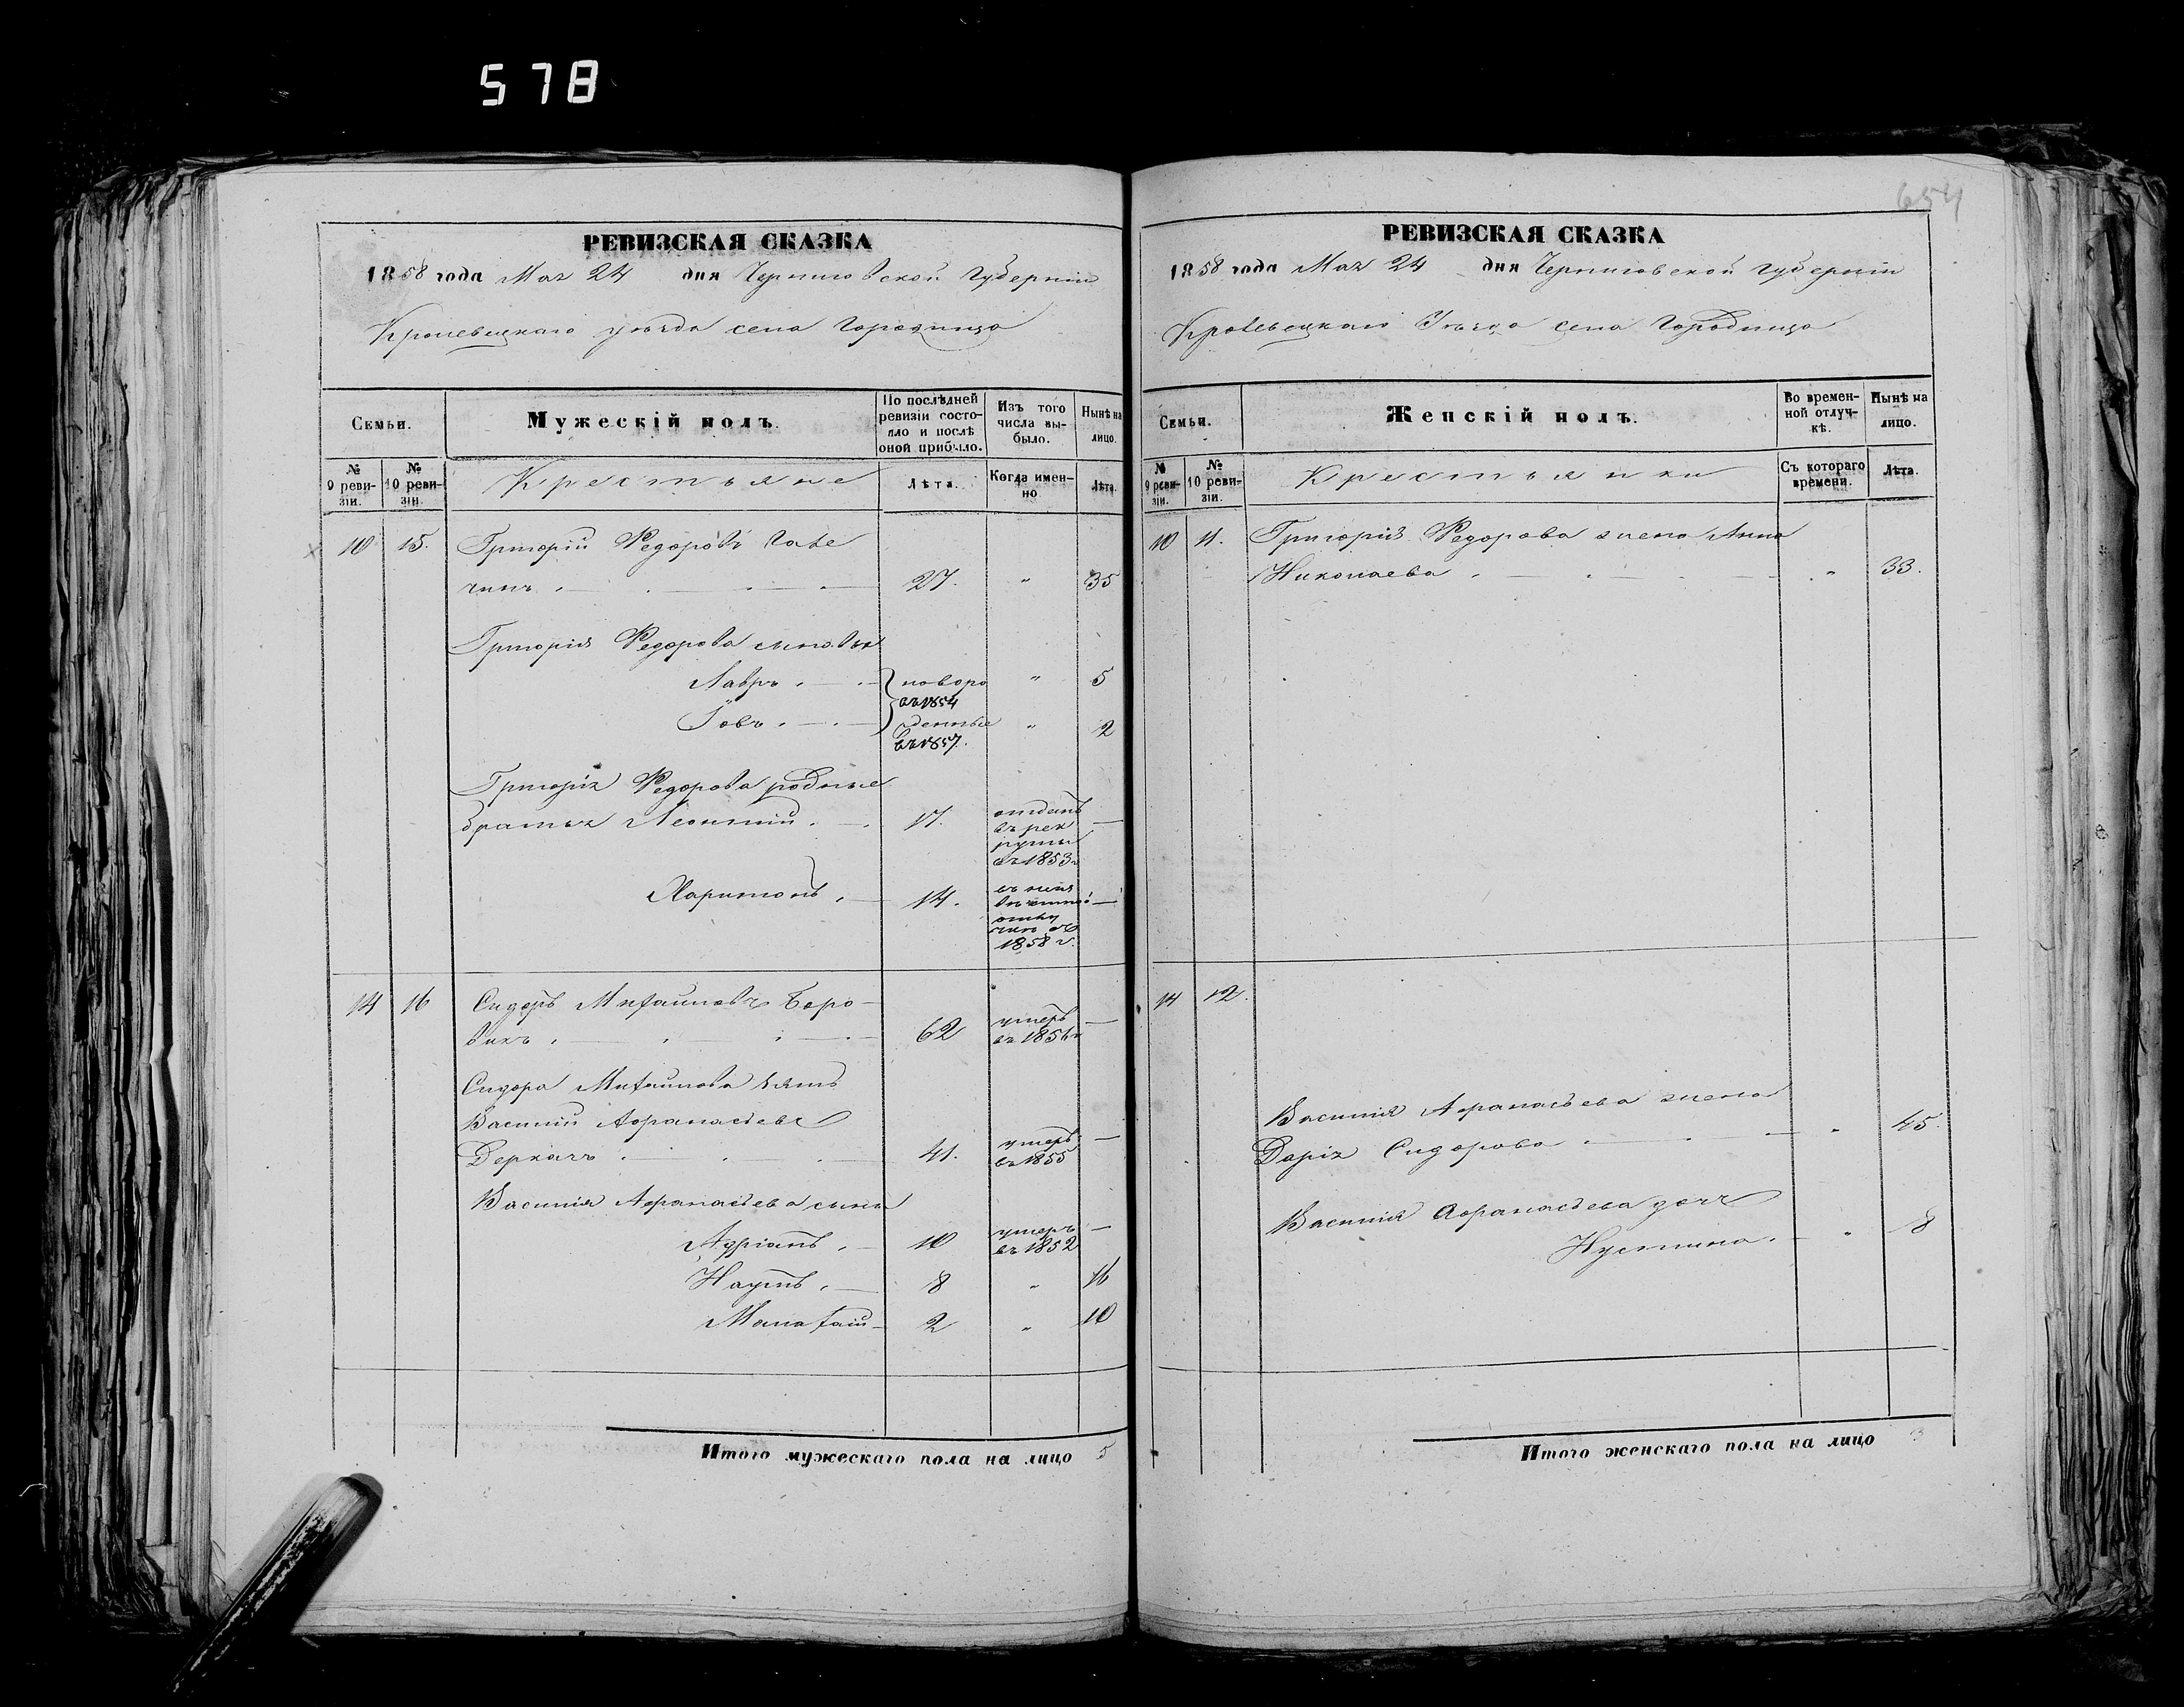 578
654
РЕВИЗСКАЯ СКАЗКА
1858 года Мая 24 дня Черниговской Губерніи
Кролевецкаго уѣзда села Городища
Семьи.
Мужескій полъ.
По послѣдней ревизіи состояло и послѣ оной прибыло.
Изъ того числа выбыло.
Нынѣ на лицо.
№ 9 ревизіи.
№ 10 ревизіи.
Крестьяне
Лѣта.
Когда именно
Лѣта.
10 15. Григорій Федоровъ
чинъ 27. " 35
Григорія Федорова сыновья
Лавръ новоро " 5
въ 1854
Іовъ жденные " 2
въ 1857.
Григорія Федорова родные
братья Леонтий 17. отданъ —
въ рек
руты
въ 1853г
Харитонъ 14. —
1858 г.
14 16 Сидоръ Михайловъ Боро-
викъ 62 умеръ —
въ
Сидора Михайлова зять
Василий Афанасьевъ
Деркачъ 41. умеръ —
въ 1855
Василия Афанасьева сыны
Адріанъ 10 умеръ —
въ 1852
Наумъ 8 " 16
Малахій 2 " 10
Итого мужескаго пола на лицо 5
РЕВИЗСКАЯ СКАЗКА
1858 года Мая 24 дня Черниговской губерніи
Кролевецкаго Уѣзда села Городища
Семьи.
Женскій полъ.
Во временной отлучкѣ.
Нынѣ на лицо.
№ 9 ревизіи.
№ 10 ревизіи.
Крестьянки
Съ котораго времени.
Лѣта.
10 11. Григорія Федорова жена Анна
Николаева " 33.
14 12.
Василия Афанасьева жена
Дарія Сидорова " 45.
Василія Афанасьева дочь
Иустина " 8
Итого женскаго пола на лицо 3